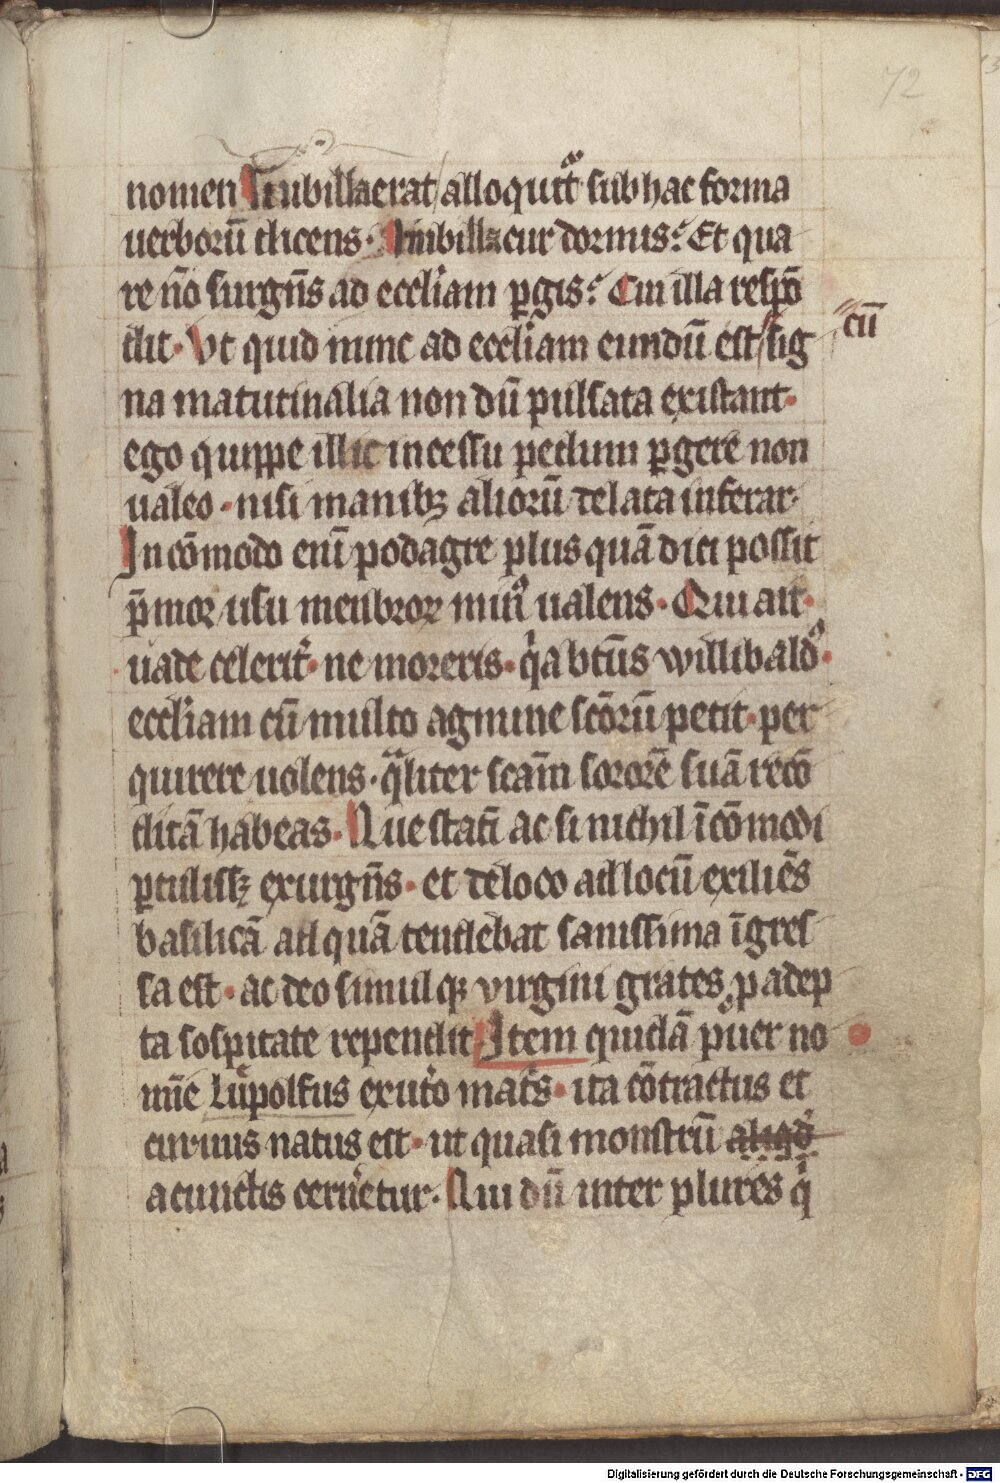 72
nomen Nubilla erat alloquit͛ sub hac forma
uerborū dicens · Nubilla cur dormis? Et qua
re nō surgn̄s ad eccl̄iam ꝑgis? Cui illa respō
dit · Vt quid nunc ad eccl̄iam eundū est sig cū
na matutinalia non dū pulsata existant ·
ego quippe illic incessu pedum ꝑgere non
ualeo · nisi manibꝫ alioꝝ delata inferar ·
Incōmodo enī podagre plus quā dici possit
p̄mor usu menbroꝝ minꝰ ualens · Qui ait ·
uade celerit͛ · ne moreris · qͥa btūs willibaldꝰ ·
eccl̄iam cū multo agmine sc̄orū petit · per
quirere uolens · qͣliter sc̄am sororē suā recō
ditā habeas · Que statī ac si nichil īcōmodi
ꝑtulissꝫ exurgn̄s · et de loco ad locū exiliēs
basilicā ad quā tendebat sanissima īgres
sa est · ac deo simulqꝫ virgini grates ꝓ adep
ta sospitate rependit Item quidā puer no
mīe Lupolfus exutͦo mat͛s · ita cōtractus et
curuus natus est · ut quasi monstrū aliqd̄
a cunctis cern̄etur · Qui dū inter plures qͥ
Digitalisierung gefördert durch die Deutsche Forschungsgemeinschaft - DFG